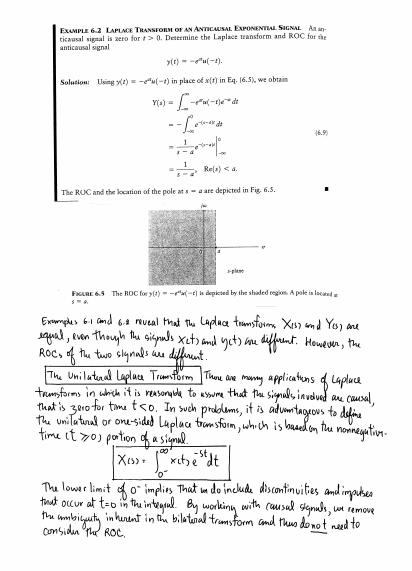 EXAMPLE 6.2 LAPLACE TRANSFORM OF AN ANTICAUSAL EXPONENTIAL SIGNAL An an-
ticausal signal is zero for t > 0. Determine the Laplace transform and ROC for the
anticausal signal
y(t) = −e^{at}u(−t).
Solution: Using y(t) = −e^{at}u(−t) in place of x(t) in Eq. (6.5), we obtain
Y(s) = ∫_{−∞}^{∞} −e^{at}u(−t)e^{−st} dt
= −∫_{−∞}^{0} e^{−(s−a)t} dt
(6.9)
= 1/(s − a) e^{−(s−a)t} |_{−∞}^{0}
= 1/(s − a), Re(s) < a.
The ROC and the location of the pole at s = a are depicted in Fig. 6.5.
jω
0 a σ
s-plane
FIGURE 6.5 The ROC for y(t) = −e^{at}u(−t) is depicted by the shaded region. A pole is located at
s = a.
Examples 6.1 and 6.2 reveal that the Laplace transforms X(s) and Y(s) are
equal, even though the signals x(t) and y(t) are different. However, the
ROCs of the two signals are different.
The Unilateral Laplace Transform There are many applications of Laplace
transforms in which it is reasonable to assume that the signals involved are causal,
that is zero for time t<0. In such problems, it is advantageous to define
the unilateral or one-sided Laplace transform, which is based on the nonnegative-
time (t ≥ 0) portion of a signal.
X(s) = ∫_{0^-}^{∞} x(t) e^{-st} dt
The lower limit of 0^- implies that we do include discontinuities and impulses
that occur at t=0 in the integral. By working with causal signals, we remove
the ambiguity inherent in the bilateral transform and thus do not need to
consider the ROC.